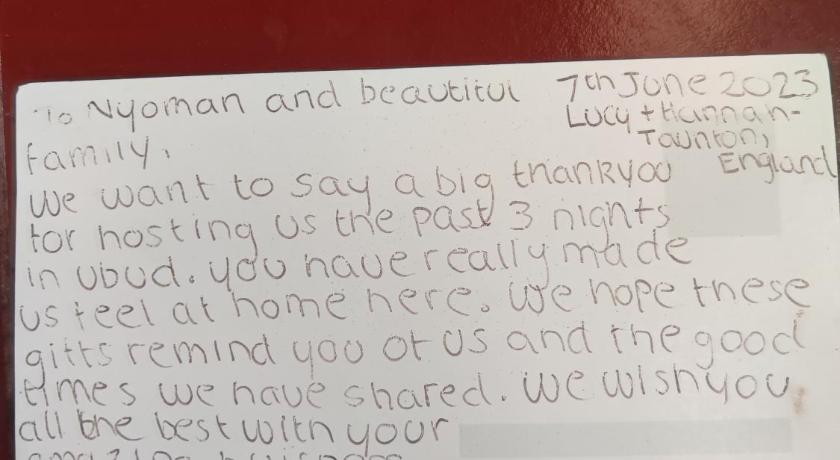 To Nyoman and beautiful 7th June 2023
Lucy + Hannah -
Taunton,
family, England
We want to say a big thankyou
for hosting us the past 3 nights
in Ubud. You have really made
us feel at home here. We hope these
gifts remind you of us and the good
times we have shared. We wish you
all the best with your